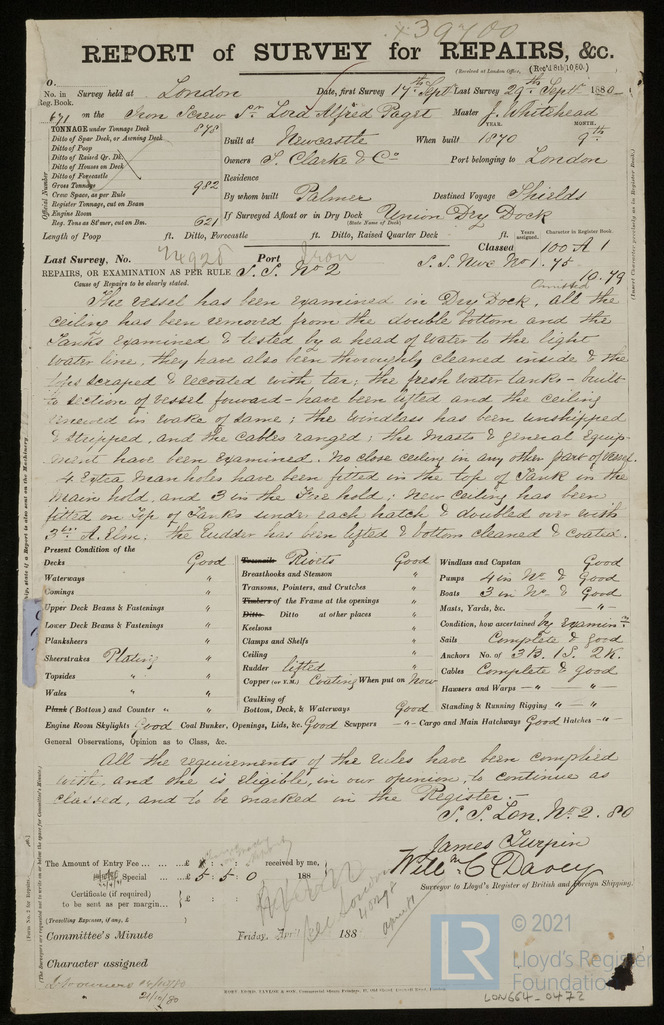 39700
REPORT of SURVEY for REPAIRS, &c.
(Received at London Office, (Rec'd 8th/10/80.)
No. in Reg. Book. Survey held at London Date, first Survey 17th Septr Last Survey 29th Septr 1880
671 on the Iron Screw Sr Lord Alfred Paget Master J. Whitehead
TONNAGE under Tonnage Deck 878
Ditto of Spar Deck, or Awning Deck
Ditto of Poop
Ditto of Raised Qr. Dk.
Ditto of Houses on Deck
Ditto of Forecastle
Gross Tonnage 982
Crew Space, as per Rule
Register Tonnage, cut on Beam
Engine Room
Reg. Tons as St'mr, cut on Bm. 621
Official Number
YEAR. MONTH.
Built at Newcastle When built 1870 9th
Owners S. Clarke & Co Port belonging to London
Residence
By whom built Palmer Destined Voyage Shields
If Surveyed Afloat or in Dry Dock Union Dry Dock
(State Name of Dock)
Length of Poop ft. Ditto, Forecastle ft. Ditto, Raised Quarter Deck ft. Years assigned. Character in Register Book.
Last Survey, No. 24928 Port Iron Classed 100 A 1
REPAIRS, OR EXAMINATION AS PER RULE S.S. No 2 S.S. Nwc No 1. 75
Cause of Repairs to be clearly stated. 10.79
Omitted
The vessel has been examined in Dry Dock, all the
ceiling has been removed from the double bottom and the
Tanks examined & tested by a head of water to the light
water line, they have also been thoroughly cleaned inside & the
tops scraped & recoated with tar; the fresh water tanks - built
to section of vessel forward - have been lifted and the ceiling
renewed in wake of same; the windlass has been unshipped
& stripped, and the cables ranged; the Masts & general Equip-
ment have been examined. No close ceiling in any other part of vessel.
4 Extra Manholes have been fitted in the top of Tank in the
Main hold, and 3 in the Fore hold; New ceiling has been
fitted on Top of Tanks under each hatch & doubled over with
3in A. Elm; the Rudder has been lifted & bottom cleaned & coated.
Present Condition of the
Decks Good
Waterways "
Comings "
Upper Deck Beams & Fastenings "
Lower Deck Beams & Fastenings "
Planksheers "
Sheerstrakes Plating "
Topsides " "
Wales " "
Plank (Bottom) and Counter " "
Treenails Rivets Good
Breasthooks and Stemson "
Transoms, Pointers, and Crutches "
Timbers of the Frame at the openings "
Ditto Ditto at other places "
Keelsons "
Clamps and Shelfs "
Ceiling "
Rudder lifted "
Copper (or Y.M.) Coating When put on Now
Caulking of
Bottom, Deck, & Waterways Good
Windlass and Capstan Good
Pumps 4 in No & Good
Boats 3 in No & Good
Masts, Yards, &c. - " -
Condition, how ascertained by Examinn
Sails Complete & good
Anchors No. of 3 B. 1 S. 2 K.
Cables Complete & good
Hawsers and Warps - " - - " -
Standing & Running Rigging " - " -
Engine Room Skylights Good Coal Bunker, Openings, Lids, &c. Good Scuppers - " - Cargo and Main Hatchways Good Hatches - " -
General Observations, Opinion as to Class, &c.
All the requirements of the rules have been complied
with, and she is eligible, in our opinion, to continue as
classed, and to be marked in the Register. -
S.S. Lon. No. 2. 80
James Turpin
Willm C Davey
Surveyor to Lloyd's Register of British and Foreign Shipping.
The Amount of Entry Fee ... ... £ : : received by me,
Special ... £ 5 : 5 : 0 188
Certificate (if required)
to be sent as per margin... £ : :
(Travelling Expenses, if any, £ )
Committee's Minute Friday, April 188
Character assigned
21/10/80
© 2021
LR
Lloyd's Register
Foundation
LON664-0472